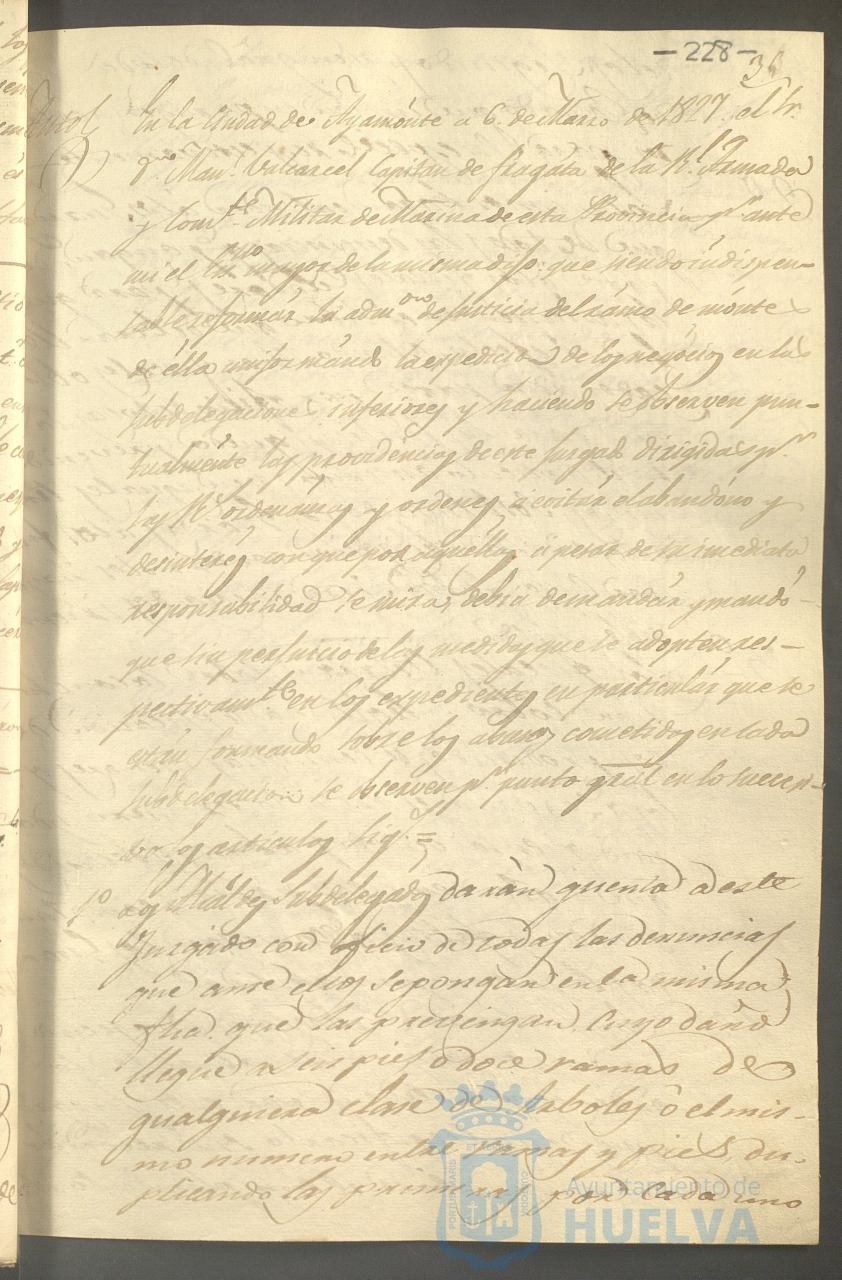 -228-
Auto
En la Ciudad de Ayamónte a 6. de Marzo de 1827. el Sr.
Dn. Manl. Valcarcel Capitan de fragata de la Rl. Armada
y Comte. Militar de Marina de esta Provincia pr. ante
mi el Esno. mayor de la misma dijo: que siendo indispen-
sable reformár la admon. de justicia del rámo de mónte
de élla uniformándo la expedicion de los negócios en las
subdelegaciones inferiores y haciendo se observen pun-
tualménte las providéncias de este Juzgado dirigidas pr.
las Rs. ordenánzas y ordenes, á evitár el abandóno y
desinterés con que por aquellas á pesar de su imediata
responsabilidad se mira, debia de mandár y mandó
que sin perjuicio de las medidas que se adopten res-
pectivamte. en los expedientes en particulár que se
están formando sobre los abusos cometidos en cada
subdelegacion se observen pr. punto gral en lo succesi-
vo los articulos sigs. =
1º Los Alcaldes Subdelegados darán quenta a este
Juzgado con oficio de todas las denuncias
que ante ellos se pongan en la misma
fha. que las prevengan, cuyo daño
llegue a seis pies o doce ramas de
qualquiera clase de Arboles ó el mis-
mo numero entre ramas y pies, du-
plicando las primeras por cada uno
Ayuntamiento de
HUELVA